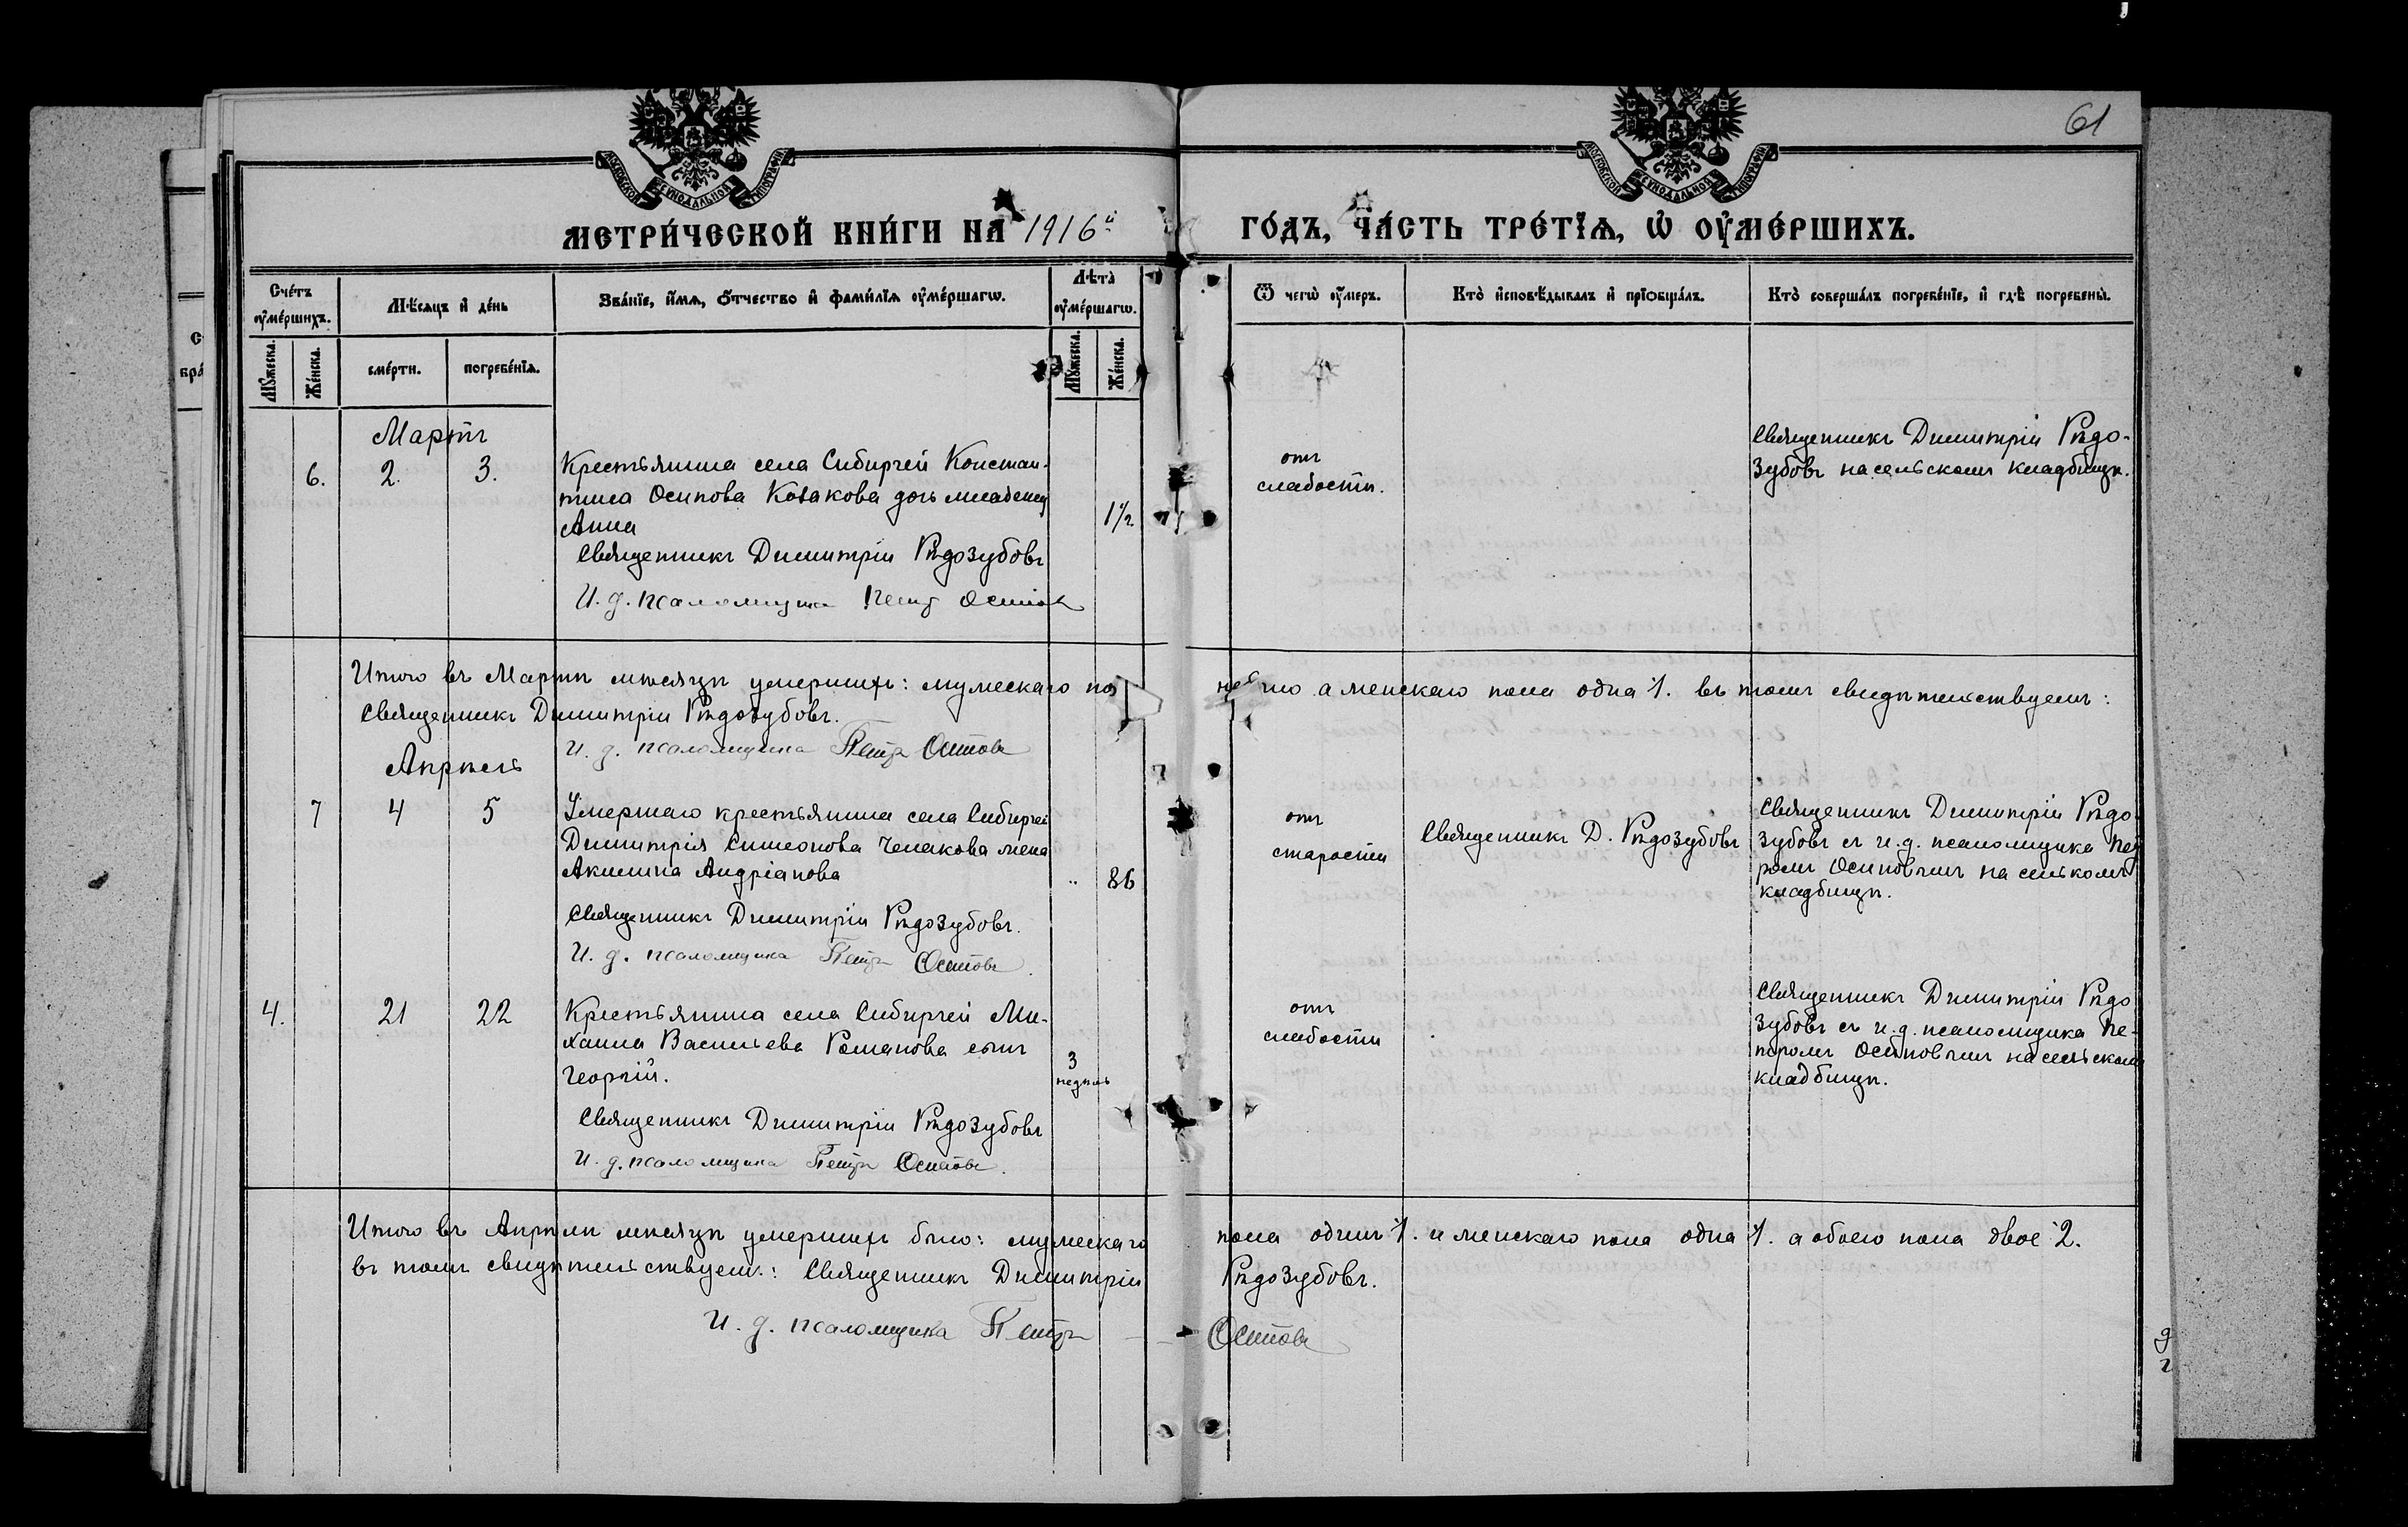 61
МОСКОВСКОЙ СѴНОДАЛЬНОЙ ТИПОГРАФІИ
МОСКОВСКОЙ СѴНОДАЛЬНОЙ ТИПОГРАФІИ
МЕТРИ́ЧЕСКОЙ КНИ́ГИ НА 1916й ГО́ДЪ, ЧА́СТЬ ТРЕ́ТІѦ, Ѡ҆ ОУ҆МЕ́РШИХЪ.
Сче́тъ оу҆ме́ршихъ.
Мѣ́сяцъ и҆ де́нь
Зва́нїе, и҆́мѧ, ѻ҆́тчество и҆ фами́лїѧ оу҆ме́ршагѡ.
Лѣ́та оу҆ме́ршагѡ.
Ѿ чегѡ̀ оу҆́меръ.
Кто̀ и҆сповѣ́дывалъ и҆ прїѻбща́лъ.
Кто̀ соверша́лъ погребе́нїе, и҆ гдѣ̀ погребены̀.
Мꙋ́жеска.
Же́нска.
сме́рти.
погребе́нїѧ.
Мꙋ́жеска.
Же́нска.
Мартъ
6.
2.
3.
Крестьянина села Сибиргей Констан-
тина Осипова Казакова дочь младенец
Анна
1½
Священникъ Димитрій Рѣдозубовъ
И. д. псаломщика Петръ Осиповъ
отъ
слабости.
Священникъ Димитрій Рѣдо-
зубовъ на сельскомъ кладбищѣ.
Итого въ Мартѣ мѣсяцѣ умершихъ: мужескаго по не было а женскаго пола одна 1. въ томъ свидѣтельствуемъ:
Священникъ Димитрій Рѣдозубовъ.
И. д. псаломщика Петръ Осиповъ
Апрѣль
7
4
5
Умершаго крестьянина села Сибиргей
Димитрія Симеонова Чепакова жена
Акилина Андріанова
86
Священникъ Димитрій Рѣдозубовъ.
И. д. псаломщика Петръ Осиповъ.
отъ
старости
Священникъ Д. Рѣдозубовъ
Священникъ Димитрій Рѣдо-
зубовъ съ и. д. псаломщика Пет
ромъ Осиповымъ на сельскомъ
кладбищѣ.
4.
21
22
Крестьянина села Сибиргей Ми-
хаила Васильева Романова сынъ
Георгій.
3
недѣль
Священникъ Димитрій Рѣдозубовъ
И. д. псаломщика Петръ Осиповъ.
отъ
слабости
Священникъ Димитрій Рѣдо
зубовъ съ и. д. псаломщика Пе-
тромъ Осиповымъ на сельскомъ
кладбищѣ.
Итого въ Апрѣлѣ мѣсяцѣ умершихъ было: мужескаго пола одинъ 1. и женскаго пола одна 1. а обоего пола двое 2.
въ томъ свидѣтельствуемъ: Священникъ Димитрій Рѣдозубовъ.
И. д. псаломщика Петръ Осиповъ